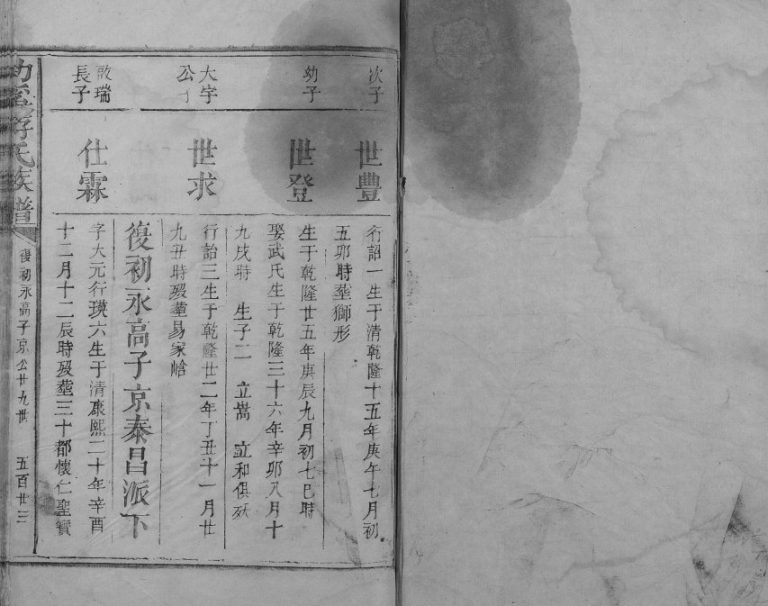 次子
世豐
行詒一生于清乾隆十五年庚午七月初
五卯時葬獅形
幼子
世登
生于乾隆廿五年庚辰九月初七巳時
娶武氏生于乾隆三十六年辛卯八月十
九戌時 生子二 立嵩 立和俱殀
大宇
公
世求
行詒三生于乾隆廿二年丁丑十一月廿
九丑時歿葬易家嶺
復初永高子京泰昌派下
啟瑞
長子
仕霖
字大元行瑛六生于清康熙二十年辛酉
十二月十二辰時歿葬三十都懷仁聖寶
游氏族譜
復初永高子京公廿九世
五百廿三